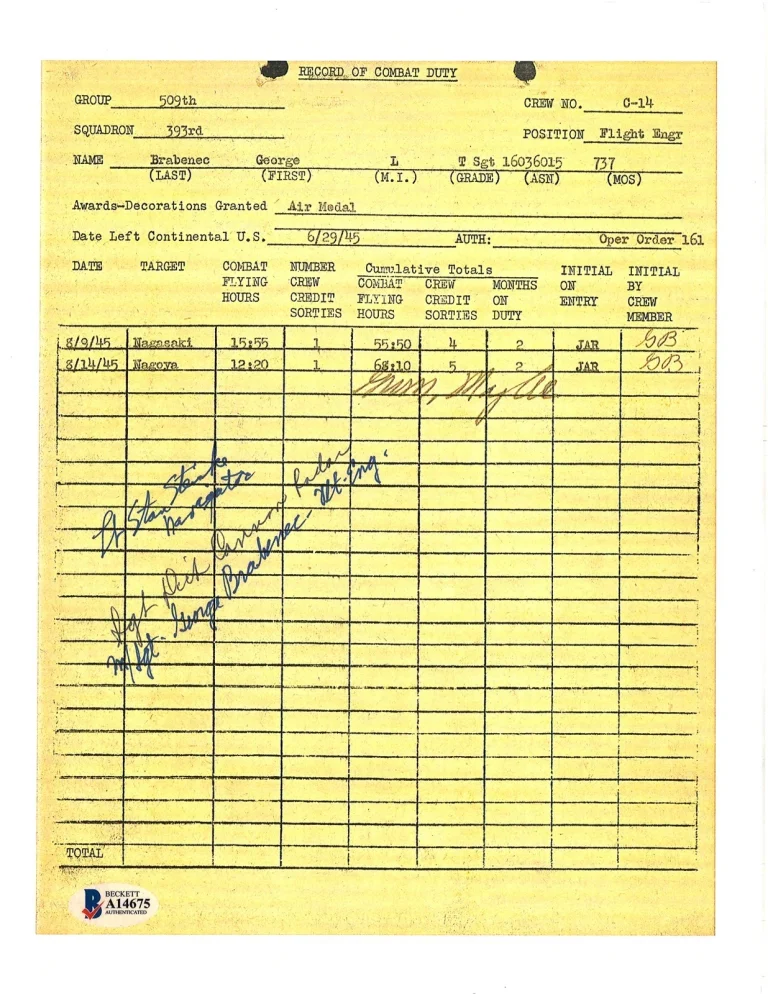 RECORD OF COMBAT DUTY
GROUP 509th CREW NO. C-14
SQUADRON 393rd POSITION Flight Engr
NAME Brabenec George L T Sgt 16036015 737
(LAST) (FIRST) (M.I.) (GRADE) (ASN) (MOS)
Awards-Decorations Granted Air Medal
Date Left Continental U.S. 6/29/45 AUTH: Oper Order 161
DATE TARGET COMBAT NUMBER Cumulative Totals INITIAL INITIAL
FLYING CREW COMBAT CREW MONTHS ON BY
HOURS CREDIT FLYING CREDIT ON ENTRY CREW
SORTIES HOURS SORTIES DUTY MEMBER
8/9/45 Nagasaki 15:55 1 55:50 4 2 JAR GB
8/14/45 Nagoya 12:20 1 68:10 5 2 JAR GB
Lt Stan Steinke
Navigator
Sgt Dick Cannon Radar
M/Sgt. George Brabenec - Flt. Eng.
TOTAL
BECKETT
A14675
AUTHENTICATED